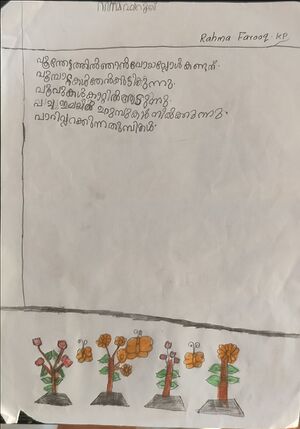 Rahma Farooq KP
പൂന്തോട്ടത്തിൽ ഞാൻ പോയപ്പോൾ കണ്ടത്.
പൂമ്പാറ്റകൾ തേൻ കുടിക്കുന്നു.
പൂവുകൾ കാറ്റിൽ ആടുന്നു.
പച്ച ഇലയിൽ
പാറിപ്പറക്കുന്ന തുമ്പികൾ.